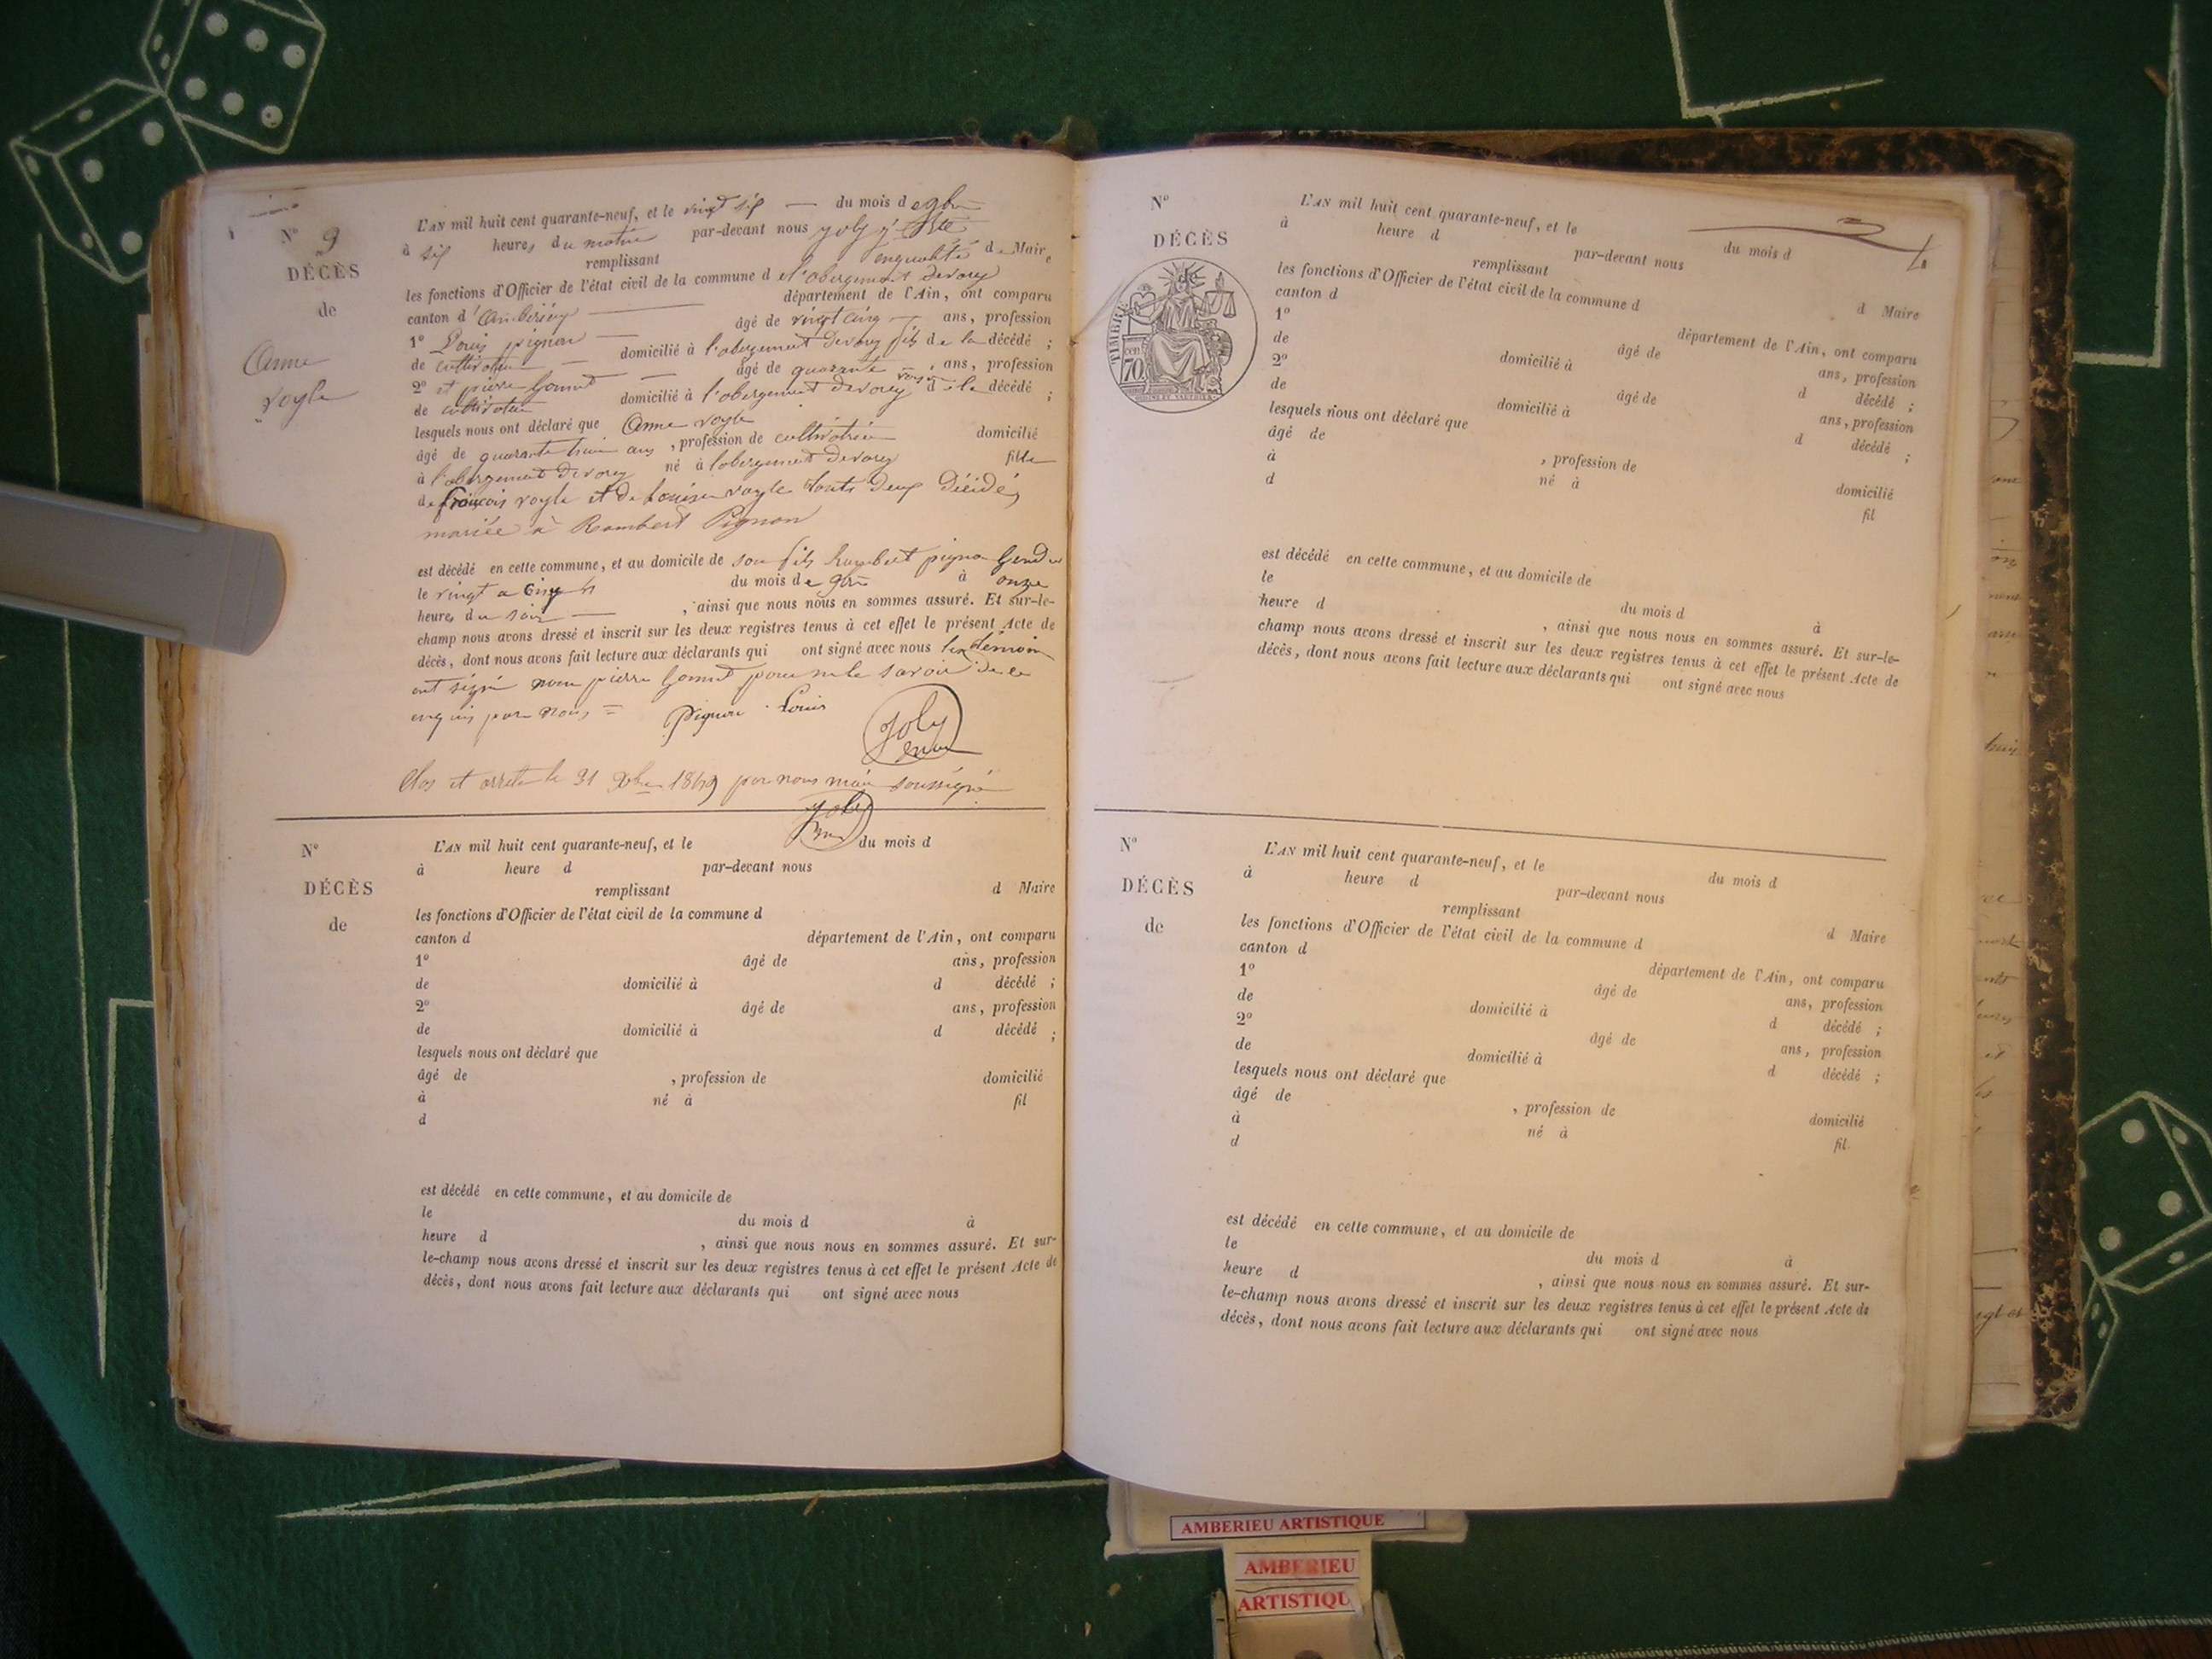 N° 9
DÉCÈS
de
Anne
voyle
L'AN mil huit cent quarante-neuf, et le vingt six du mois de 9bre
à six heures du matin par-devant nous joly
remplissant en qualité de Maire
les fonctions d'Officier de l'état civil de la commune de l'abergement devarey
canton d'Ambérieu département de l'Ain, ont comparu
1° Louis pignon âgé de vingt cinq ans, profession
de cultivateur domicilié à l'abergement devarey fils de la décédé ;
2° et pierre Gonnet âgé de quarante ans, profession
de cultivateur domicilié à l'abergement devarey voisin d de la décédé ;
lesquels nous ont déclaré que Anne voyle
âgé de quarante trois ans, profession de cultivatrice domicilié
à l'abergement devarey né à l'abergement devarey fille
de françois voyle et de Louise voyle touts deux décidés
mariée à Rambert Pignon
est décédé en cette commune, et au domicile de son fils Rambert pignon
le vingt a Cinq du mois de 9bre à onze
heures du soir, ainsi que nous nous en sommes assuré. Et sur-le-
champ nous avons dressé et inscrit sur les deux registres tenus à cet effet le présent Acte de
décès, dont nous avons fait lecture aux déclarants qui ont signé avec nous les témoin
ont signé non pierre Gonnet pour ne le savoir de ce
enquis par nous =
pignon Louis
Joly
Clos et arrete le 31 Xbre 1849 par nous maire soussigné
Joly
N°
DÉCÈS
de
L'AN mil huit cent quarante-neuf, et le du mois d
à heure d par-devant nous
remplissant d Maire
les fonctions d'Officier de l'état civil de la commune d
canton d département de l'Ain, ont comparu
1° âgé de ans, profession
de domicilié à d décédé ;
2° âgé de ans, profession
de domicilié à d décédé ;
lesquels nous ont déclaré que
âgé de , profession de domicilié
à né à fil
d
est décédé en cette commune, et au domicile de
le du mois d à
heure d , ainsi que nous nous en sommes assuré. Et sur-
le-champ nous avons dressé et inscrit sur les deux registres tenus à cet effet le présent Acte de
décès, dont nous avons fait lecture aux déclarants qui ont signé avec nous
N°
DÉCÈS
de
TIMBRE
cen
70
L'AN mil huit cent quarante-neuf, et le du mois d
à heure d par-devant nous
remplissant d Maire
les fonctions d'Officier de l'état civil de la commune d
canton d département de l'Ain, ont comparu
1° âgé de ans, profession
de domicilié à d décédé ;
2° âgé de ans, profession
de domicilié à d décédé ;
lesquels nous ont déclaré que
âgé de , profession de domicilié
à né à fil
d
est décédé en cette commune, et au domicile de
le du mois d à
heure d , ainsi que nous nous en sommes assuré. Et sur-le-
champ nous avons dressé et inscrit sur les deux registres tenus à cet effet le présent Acte de
décès, dont nous avons fait lecture aux déclarants qui ont signé avec nous
N°
DÉCÈS
de
L'AN mil huit cent quarante-neuf, et le du mois d
à heure d par-devant nous
remplissant d Maire
les fonctions d'Officier de l'état civil de la commune d
canton d département de l'Ain, ont comparu
1° âgé de ans, profession
de domicilié à d décédé ;
2° âgé de ans, profession
de domicilié à d décédé ;
lesquels nous ont déclaré que
âgé de , profession de domicilié
à né à fil.
d
est décédé en cette commune, et au domicile de
le du mois d à
heure d , ainsi que nous nous en sommes assuré. Et sur-
le-champ nous avons dressé et inscrit sur les deux registres tenus à cet effet le présent Acte de
décès, dont nous avons fait lecture aux déclarants qui ont signé avec nous
AMBERIEU ARTISTIQUE
AMBERIEU
ARTISTIQU